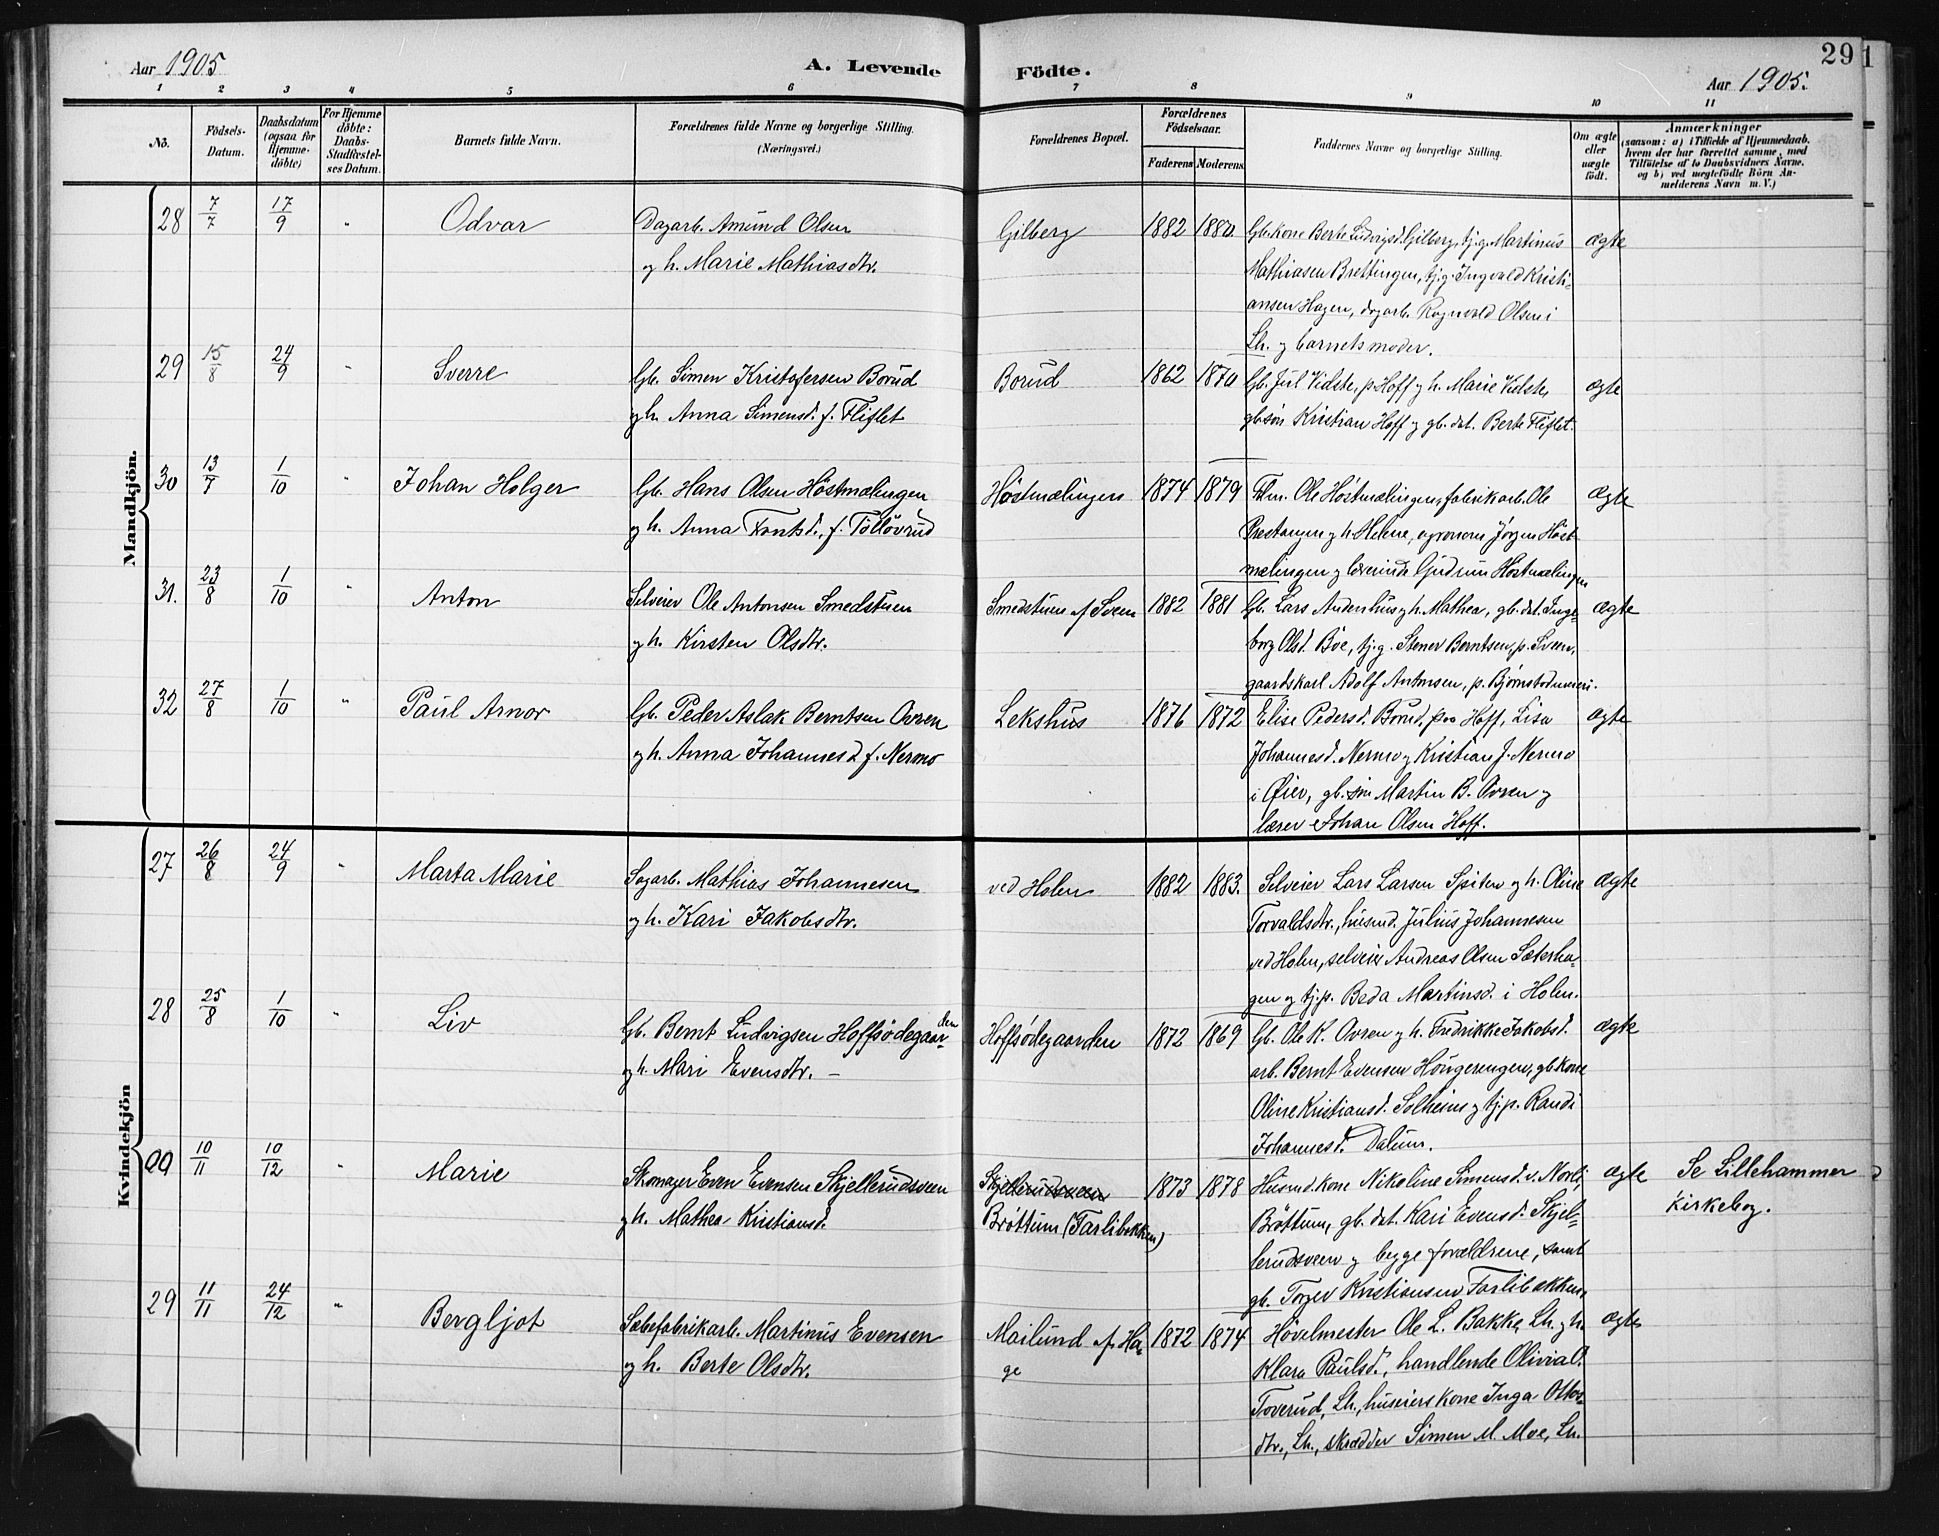 Aar 1905
A. Levende Födte.
29
1
Aar 1905.
1 2 3 4 5 6 7 8 9 10 11
No.
Födsels-Datum.
Daabsdatum (ogsaa for Hjemme-döbte)
For Hjemme döbte: Daabs-Stadfæstel-ses Datum.
Barnets fulde Navn.
Forældrenes fulde Navne og borgerlige Stilling. (Næringsvei.)
Forældrenes Bopæl.
Forældrenes Födselsaar.
Faderens Moderens
Faddernes Navne og borgerlige Stilling.
Om ægte eller uægte födt.
Anmærkninger
(saasom: a) i Tilfælde af Hjemmedaab. hvem der har forrettet samme, med Tilföielse af to Daabsvidners Navne. og b) ved uægtefödte Börn An-melderens Navn m. V.)
Mandkjön.
28 7/7 17/9 " Odvar
Dagarb. Amund Olsen
og h. Marie Mathiasdtr.
Gilberg 1882 1880
Gb.kone Berte Ludvigsd. Gilberg, tj.g. Martinus
Mathiasen Brettingen, tj.g. Ingvald Kristi-
ansen Hagen, dagarb. Ragnvald Olsen i
Lh. og barnets moder.
ægte
29 15/8 24/9 " Sverre
Gb. Simen Kristofersen Borud
og h. Anna Simensd. f. Fliflet
Borud 1862 1870
Gb. Jul Vidste, p. Hoff og h. Marie Vidste,
gb.søn Kristian Hoff og gb. dat. Berte Fliflet.
ægte
30 13/7 1/10 " Johan Holger
Gb. Hans Olsen Höstmælingen
og h. Anna Frantsd., f. Tollövrud
Höstmælingen 1874 1879
Ole Höstmælingen, fabrikarb. Ole
Prestangen og h. Helene, agronom Jørgen Höst-
mælingen og lærerinde Gudrun Höstmælingen
ægte
31. 23/8 1/10 " Anton
Selveier Ole Antonsen Smedstuen
og h. Kirsten Olsdtr.
Smedstuen af Sveen 1882 1881
Gb. Lars Andenhus og h. Mathea, gb. dat. Inge-
borg Olsd. Böe, tj.g. Stener Berntsen, p. Sveen,
gaardskarl Adolf Antonsen, p.
ægte
32 27/8 1/10 " Paul Arnor
Gb. Peder Aslak Berntsen Ovren
og h. Anna Johannesd. f. Nermo
Lekshus 1876 1872
Elise Pedersd. Borud, paa Hoff, Lisa
Johannesd. Nermo og Kristian J. Nermo
i Øier, gb. søn Martin B. Ovren og
lærer Johan Olsen Hoff.
ægte
Kvindekjön
27 26/8 24/9 " Marta Marie
Sagarb. Mathias Johannesen
og h. Kari Jakobsdtr.
ved Holen 1882 1883.
Selveier Lars Larsen Spiten og h. Oline
Torvaldsdtr., husmd. Julius Johannesen
ved Holen, selveier Andreas Olsen Sæterha-
gen og tj.p. Beda Martinsd. i Holen.
ægte
28 25/8 1/10 " Liv
Gb. Bernt Ludvigsen Hoffsödegaar-den
og h. Mari Evensdtr. –
Hoffsödegaarden 1872 1869
Gb. Ole K. Ovren og h. Fredrikke Jakobsd.
arb. Bernt Evensen Höugerengen, gb.kone
Oline Kristiansd. Solheim og tj.p. Randi
Johannesd. Dalum.
ægte
00 10/11 10/12 " Marie
Skomager Even Evensen Skjellerudsveen
og h. Mathea Kristiansd.
Skjellerudsveen
Bröttum (Farlibakken)
1873 1878
Husmd.kone Nikoline Simensd. v. Norli,
Bröttum, gb. dat. Kari Evensd. Skjel-
lerudsveen og begge forældrene, samt
gb. Torger Kristiansen Farlibakken.
ægte
Se Lillehammer
Kirkebog.
29 11/11 24/12 " Bergljot
Sæbefabrikarb. Martinus Evensen
og h. Berte Olsdtr.
Mailund af Ha-
ge
1872 1874
Hövelmester Ole L. Bakke, Lh. og h.
Klara Paulsd., handlende Olivia O.
Toverud, Lh., huseiers kone Inga Ottos-
dtr., Lh., skrædder Simen M. Moe, Lh.
ægte